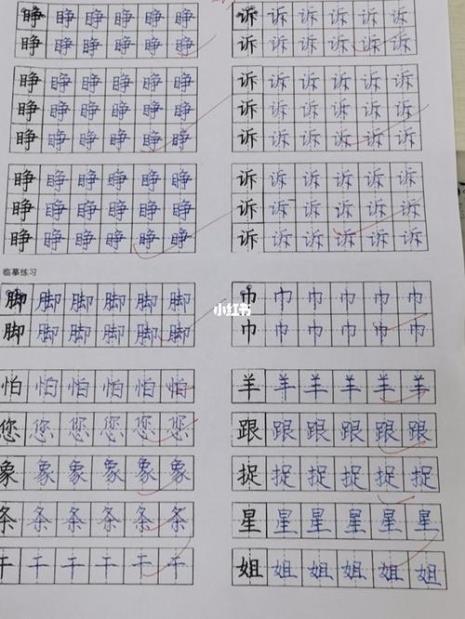 睁睁睁睁睁睁 诉诉诉诉诉诉
睁睁睁睁睁睁 诉诉诉诉诉诉
睁睁睁睁睁睁 诉诉诉诉诉诉
睁睁睁睁睁睁 诉诉诉诉诉诉
睁睁睁睁睁睁 诉诉诉诉诉诉
睁睁睁睁睁睁 诉诉诉诉诉诉
睁睁睁睁睁睁 诉诉诉诉诉诉
睁睁睁睁睁睁 诉诉诉诉诉诉
临摹练习
脚脚脚脚脚脚 巾巾巾巾巾巾
小红书
脚脚脚脚脚脚 巾巾巾巾巾巾
怕怕怕怕怕怕 羊羊羊羊羊羊
您您您您您您 跟跟跟跟跟跟
象象象象象象 捉捉捉捉捉捉
条条条条条条 星星星星星星
干干干干干干 姐姐姐姐姐姐